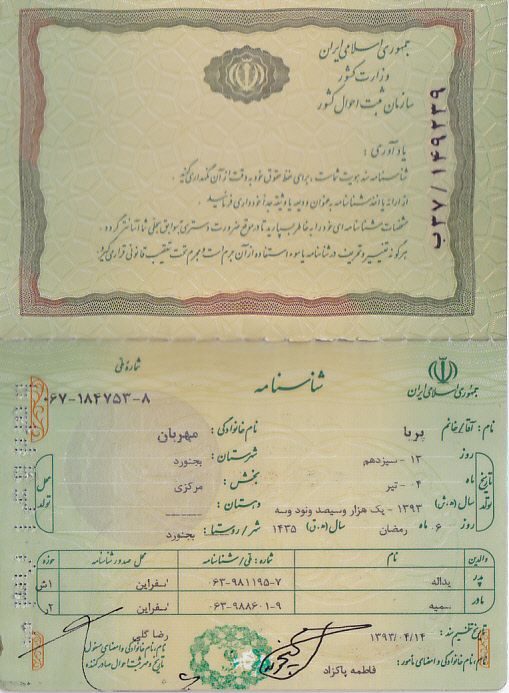 جمهوری اسلامی ایران
وزارت کشور
سازمان ثبت احوال کشور
ب۳۷/۱۴۹۲۳۹
یادآوری :
شناسنامه سند هویت شماست ، برای حفظ حقوق خود به دقت از آن نگهداری کنید .
از ارائه یا اخذ شناسنامه به عنوان ودیعه یا وثیقه جداً خودداری نمائید .
مشخصات شناسنامه ای خود را به خاطر بسپارید تا در موقع ضرورت دسترسی به سوابق سجلی شما آسانتر گردد .
هرگونه تغییر و تحریف در شناسنامه یا سوء استفاده از آن جرم است و مجرم تحت تعقیب قانونی قرار می گیرد .
جمهوری اسلامی ایران
شناسنامه
شماره ملی
۰۶۷-۱۸۴۷۵۳-۸
نام : آقا/خانم پریا نام خانوادگی : مهربان
تاریخ تولد
روز ۱۳ - سیزدهم شهرستان : بجنورد
ماه ۰۴ - تیر بخش : مرکزی
سال (ه.ش) ۱۳۹۳ - یک هزار وسیصد ونود وسه دهستان :
روز ۶ ماه رمضان سال (ه.ق) ۱۴۳۵ شهر/روستا : بجنورد
محل تولد
والدین نام شماره : ملی/شناسنامه محل صدور شناسنامه حوزه
پدر یداله ۰۶۳-۹۸۱۱۹۵-۷ اسفراین ۱ش
مادر سمیه ۰۶۳-۹۸۸۶۰۱-۹ اسفراین ۲ر
تاریخ تنظیم سند : ۱۳۹۳/۰۴/۱۴
نام خانوادگی و امضای مأمور : فاطمه پاکزاد
رضا گلی
نام و نام خانوادگی و امضای مسئول
و مهر ثبت احوال صادرکننده